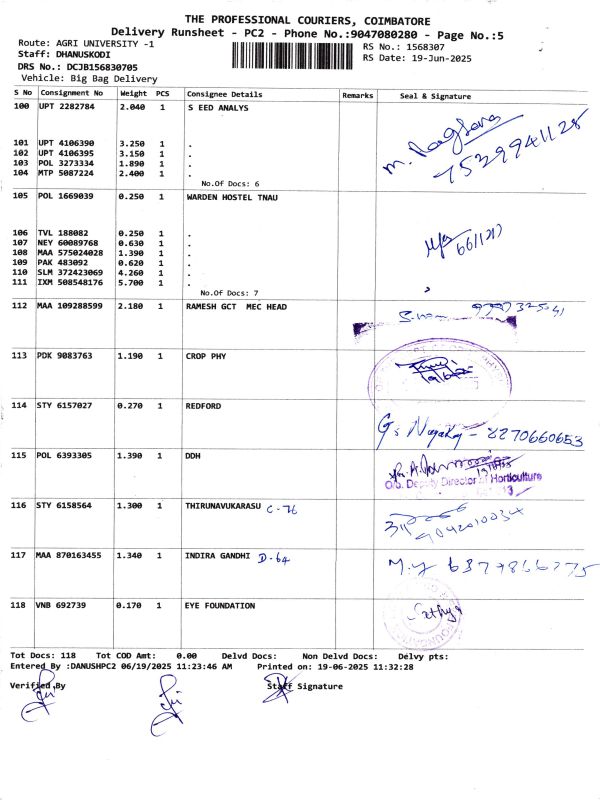 THE PROFESSIONAL COURIERS, COIMBATORE
Delivery Runsheet - PC2 - Phone No.:9047080280 - Page No.:5
Route: AGRI UNIVERSITY -1
RS No.: 1568307
Staff: DHANUSKODI
RS Date: 19-Jun-2025
DRS No.: DCJB156830705
Vehicle: Big Bag Delivery
S No Consignment No Weight PCS Consignee Details Remarks Seal & Signature
100 UPT 2282784 2.040 1 S EED ANALYS
101 UPT 4106390 3.250 1 .
102 UPT 4106395 3.150 1 .
103 POL 3273334 1.890 1 .
104 MTP 5087224 2.400 1 .
No.Of Docs: 6
7529941128
105 POL 1669039 0.250 1 WARDEN HOSTEL TNAU
106 TVL 188082 0.250 1 .
107 NEY 60089768 0.630 1 .
108 MAA 575024028 1.390 1 .
109 PAK 483092 0.620 1 .
110 SLM 372423069 4.260 1 .
111 IXM 508548176 5.700 1 .
No.Of Docs: 7
112 MAA 109288599 2.180 1 RAMESH GCT MEC HEAD
113 PDK 9083763 1.190 1 CROP PHY
114 STY 6157027 0.270 1 REDFORD
Gs Nagaraj - 8270660653
115 POL 6393305 1.390 1 DDH
O/o. Deputy Director of Horticulture
116 STY 6158564 1.300 1 THIRUNAVUKARASU C-76
9042010034
117 MAA 870163455 1.340 1 INDIRA GANDHI D-64
M.y 6379866775
118 VNB 692739 0.170 1 EYE FOUNDATION
Sathya
Tot Docs: 118 Tot COD Amt: 0.00 Delvd Docs: Non Delvd Docs: Delvy pts:
Entered By :DANUSHPC2 06/19/2025 11:23:46 AM Printed on: 19-06-2025 11:32:28
Verified By Staff Signature